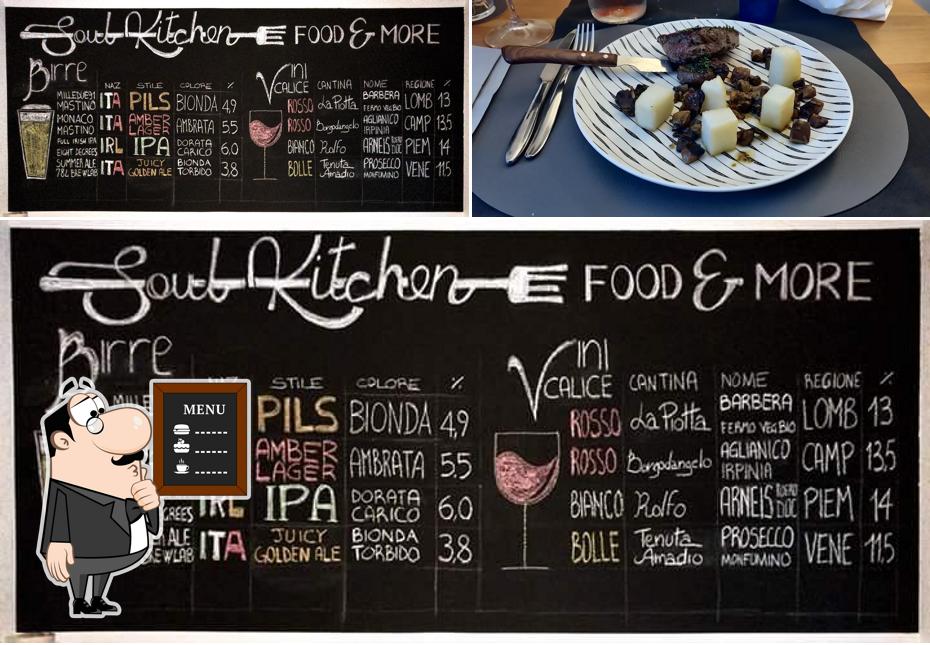 Soul Kitchen FOOD & MORE
Birre
NAZ STILE COLORE %
MILLEDUE91 MASTINO ITA PILS BIONDA 4,9
MONACO MASTINO ITA AMBER LAGER AMBRATA 5.5
FULL IRISH IPA EIGHT DEGREES IRL IPA DORATA CARICO 6.0
SUMMER ALE 78L BREWLAB ITA JUICY GOLDEN ALE BIONDA TORBIDO 3.8
VINI CALICE CANTINA NOME REGIONE %
ROSSO La Piotta BARBERA FERMO VEG.BIO LOMB 13
ROSSO Borgodangelo AGLIANICO IRPINIA CAMP 13,5
BIANCO Rolfo ARNEIS ROERO DOC PIEM 14
BOLLE Tenuta Amadio PROSECCO MONFUMINO VENE 11.5
Soul Kitchen FOOD & MORE
Birre
STILE COLORE %
PILS BIONDA 4,9
AMBER LAGER AMBRATA 5.5
IRL IPA DORATA CARICO 6,0
ITA JUICY GOLDEN ALE BIONDA TORBIDO 3,8
MENU
VINI CALICE CANTINA NOME REGIONE %
ROSSO La Piotta BARBERA FERMO VEG.BIO LOMB 13
ROSSO Borgodangelo AGLIANICO IRPINIA CAMP 13,5
BIANCO Rolfo ARNEIS ROERO DOC PIEM 14
BOLLE Tenuta Amadio PROSECCO MONFUMINO VENE 11.5